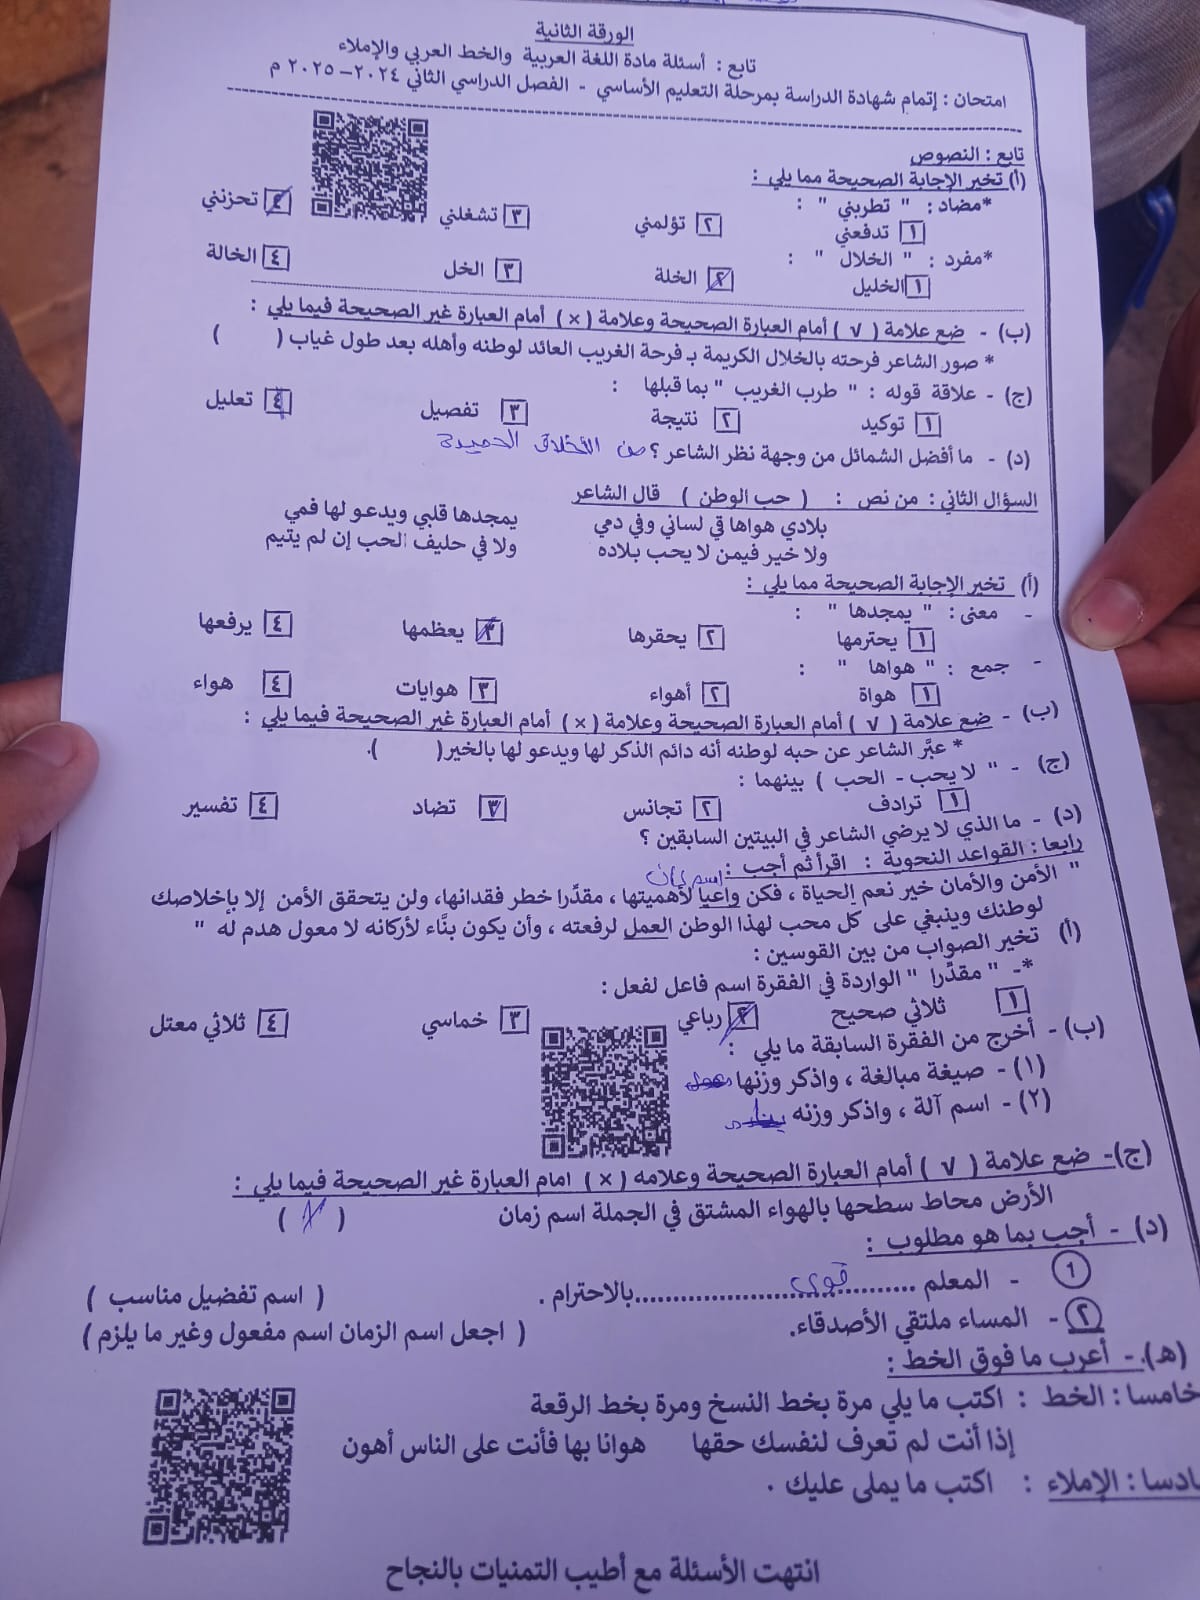 الورقة الثانية
تابع : أسئلة مادة اللغة العربية والخط العربي والإملاء
امتحان : إتمام شهادة الدراسة بمرحلة التعليم الأساسي - الفصل الدراسي الثاني ٢٠٢٤-٢٠٢٥ م
تابع : النصوص
(أ) تخير الإجابة الصحيحة مما يلي :
*مضاد : " تطربني " :
١ تدفعني ٢ تؤلمني ٣ تشغلني ٤ تحزنني
*مفرد : " الخلال " :
١ الخليل ٢ الخلة ٣ الخل ٤ الخالة
(ب) - ضع علامة ( √ ) أمام العبارة الصحيحة وعلامة ( × ) أمام العبارة غير الصحيحة فيما يلي :
* صور الشاعر فرحته بالخلال الكريمة بـ فرحة الغريب العائد لوطنه وأهله بعد طول غياب ( )
(ج) - علاقة قوله : " طرب الغريب " بما قبلها :
١ توكيد ٢ نتيجة ٣ تفصيل ٤ تعليل
(د) - ما أفضل الشمائل من وجهة نظر الشاعر ؟ من الأخلاق الحميدة
السؤال الثاني : من نص : ( حب الوطن ) قال الشاعر
بلادي هواها في لساني وفي دمي يمجدها قلبي ويدعو لها فمي
ولا خير فيمن لا يحب بلاده ولا في حليف الحب إن لم يتيم
(أ) تخير الإجابة الصحيحة مما يلي :
- معنى : " يمجدها " :
١ يحترمها ٢ يحقرها ٣ يعظمها ٤ يرفعها
- جمع : " هواها " :
١ هواة ٢ أهواء ٣ هوايات ٤ هواء
(ب) - ضع علامة ( √ ) أمام العبارة الصحيحة وعلامة ( × ) أمام العبارة غير الصحيحة فيما يلي :
* عبَّر الشاعر عن حبه لوطنه أنه دائم الذكر لها ويدعو لها بالخير( ).
(ج) - " لا يحب - الحب ) بينهما :
١ ترادف ٢ تجانس ٣ تضاد ٤ تفسير
(د) - ما الذي لا يرضي الشاعر في البيتين السابقين ؟
رابعا : القواعد النحوية : اقرأ ثم أجب :
" الأمن والأمان خير نعم الحياة ، فكن واعيا لأهميتها ، مقدِّرا خطر فقدانها، ولن يتحقق الأمن إلا بإخلاصك
لوطنك وينبغي على كل محب لهذا الوطن العمل لرفعته ، وأن يكون بنَّاء لأركانه لا معول هدم له "
(أ) تخير الصواب من بين القوسين :
*- " مقدِّرا " الواردة في الفقرة اسم فاعل لفعل :
١ ثلاثي صحيح ٢ رباعي ٣ خماسي ٤ ثلاثي معتل
(ب) - أخرج من الفقرة السابقة ما يلي :
(١) - صيغة مبالغة ، واذكر وزنها
(٢) - اسم آلة ، واذكر وزنه
(ج)- ضع علامة ( √ ) أمام العبارة الصحيحة وعلامه ( × ) امام العبارة غير الصحيحة فيما يلي :
الأرض محاط سطحها بالهواء المشتق في الجملة اسم زمان ( × )
(د) - أجب بما هو مطلوب :
١ - المعلم ....................بالاحترام . ( اسم تفضيل مناسب )
٢ - المساء ملتقي الأصدقاء. ( اجعل اسم الزمان اسم مفعول وغير ما يلزم )
(هـ). - أعرب ما فوق الخط :
خامسا : الخط : اكتب ما يلي مرة بخط النسخ ومرة بخط الرقعة
إذا أنت لم تعرف لنفسك حقها هوانا بها فأنت على الناس أهون
ادسا : الإملاء : اكتب ما يملى عليك .
انتهت الأسئلة مع أطيب التمنيات بالنجاح